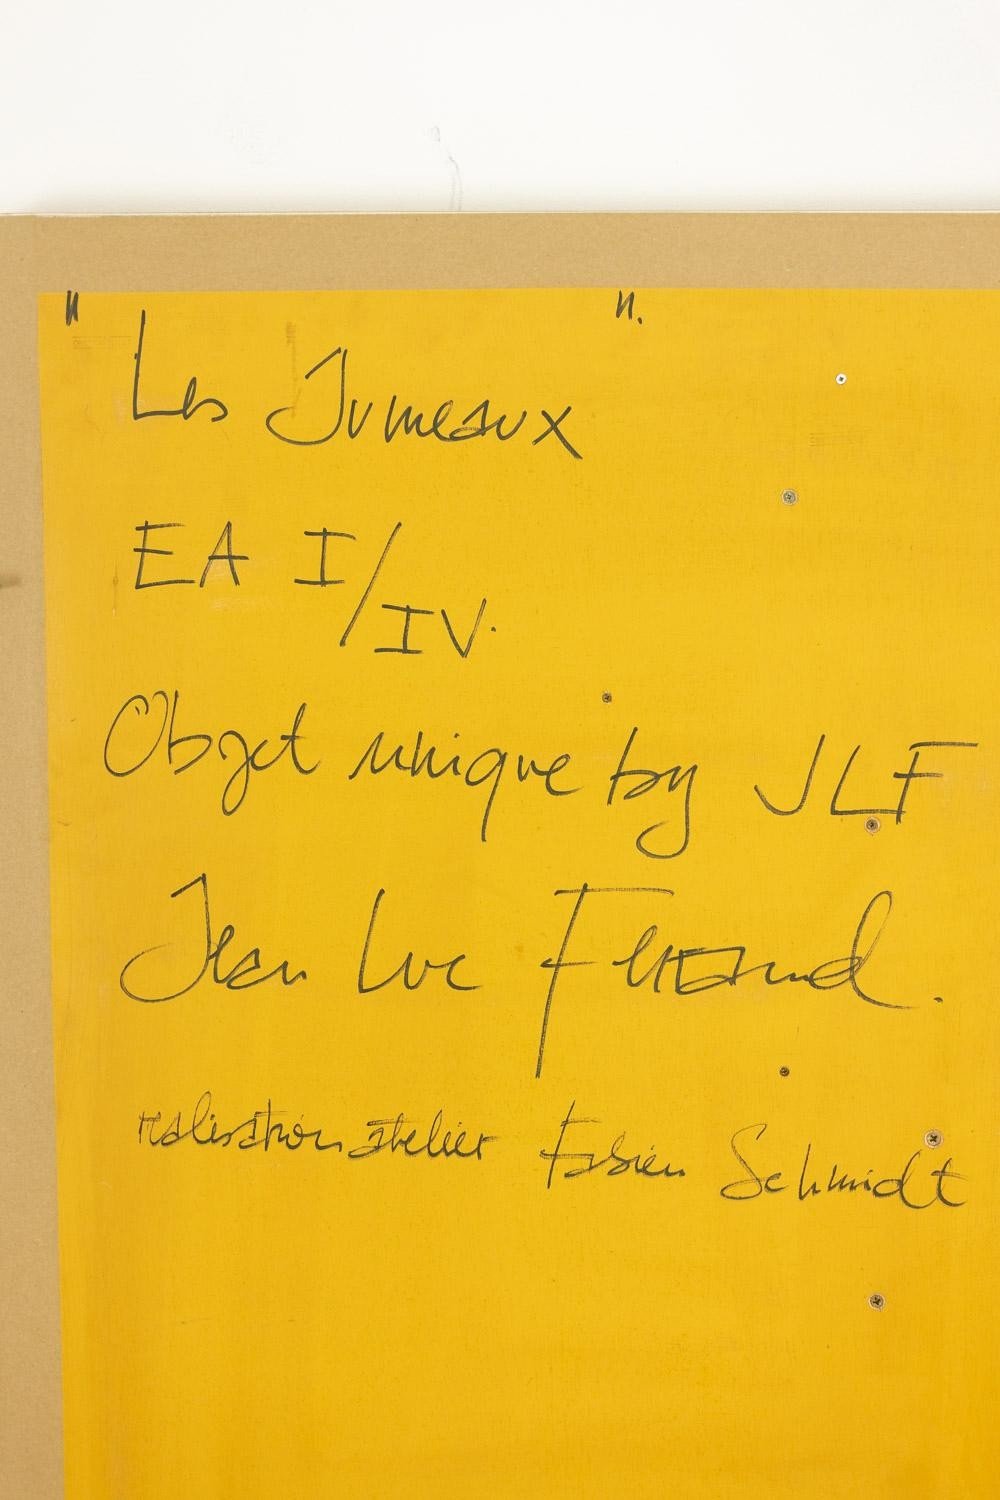 " ".
Les Jumeaux
EA I/IV.
Objet unique by JLF
Jean Luc Ferrand.
realisation atelier Fabien Schmidt